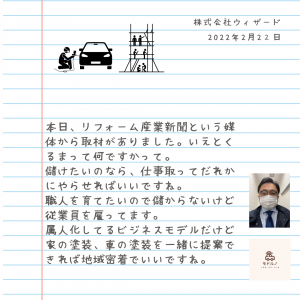 株式会社ウィザード
2022年2月22日
本日、リフォーム産業新聞という媒
体から取材がありました。いえとく
るまって何ですかって。
儲けたいのなら、仕事取ってだれか
にやらせればいいですね。
職人を育てたいので儲からないけど
従業員を雇ってます。
属人化してるビジネスモデルだけど
家の塗装、車の塗装を一緒に提案で
きれば地域密着でいいですね。
モドルノ